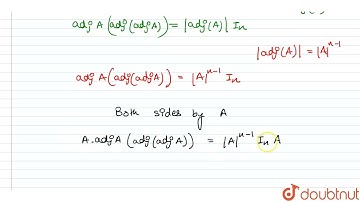 adj A (adj(adj A)) = |adj(A)| In
|adj(A)| = |A|^n-1
adj A (adj(adj A)) = |A|^n-1 In
Both sides by A
A. adj A (adj(adj A)) = |A|^n-1 In A
doubtnut